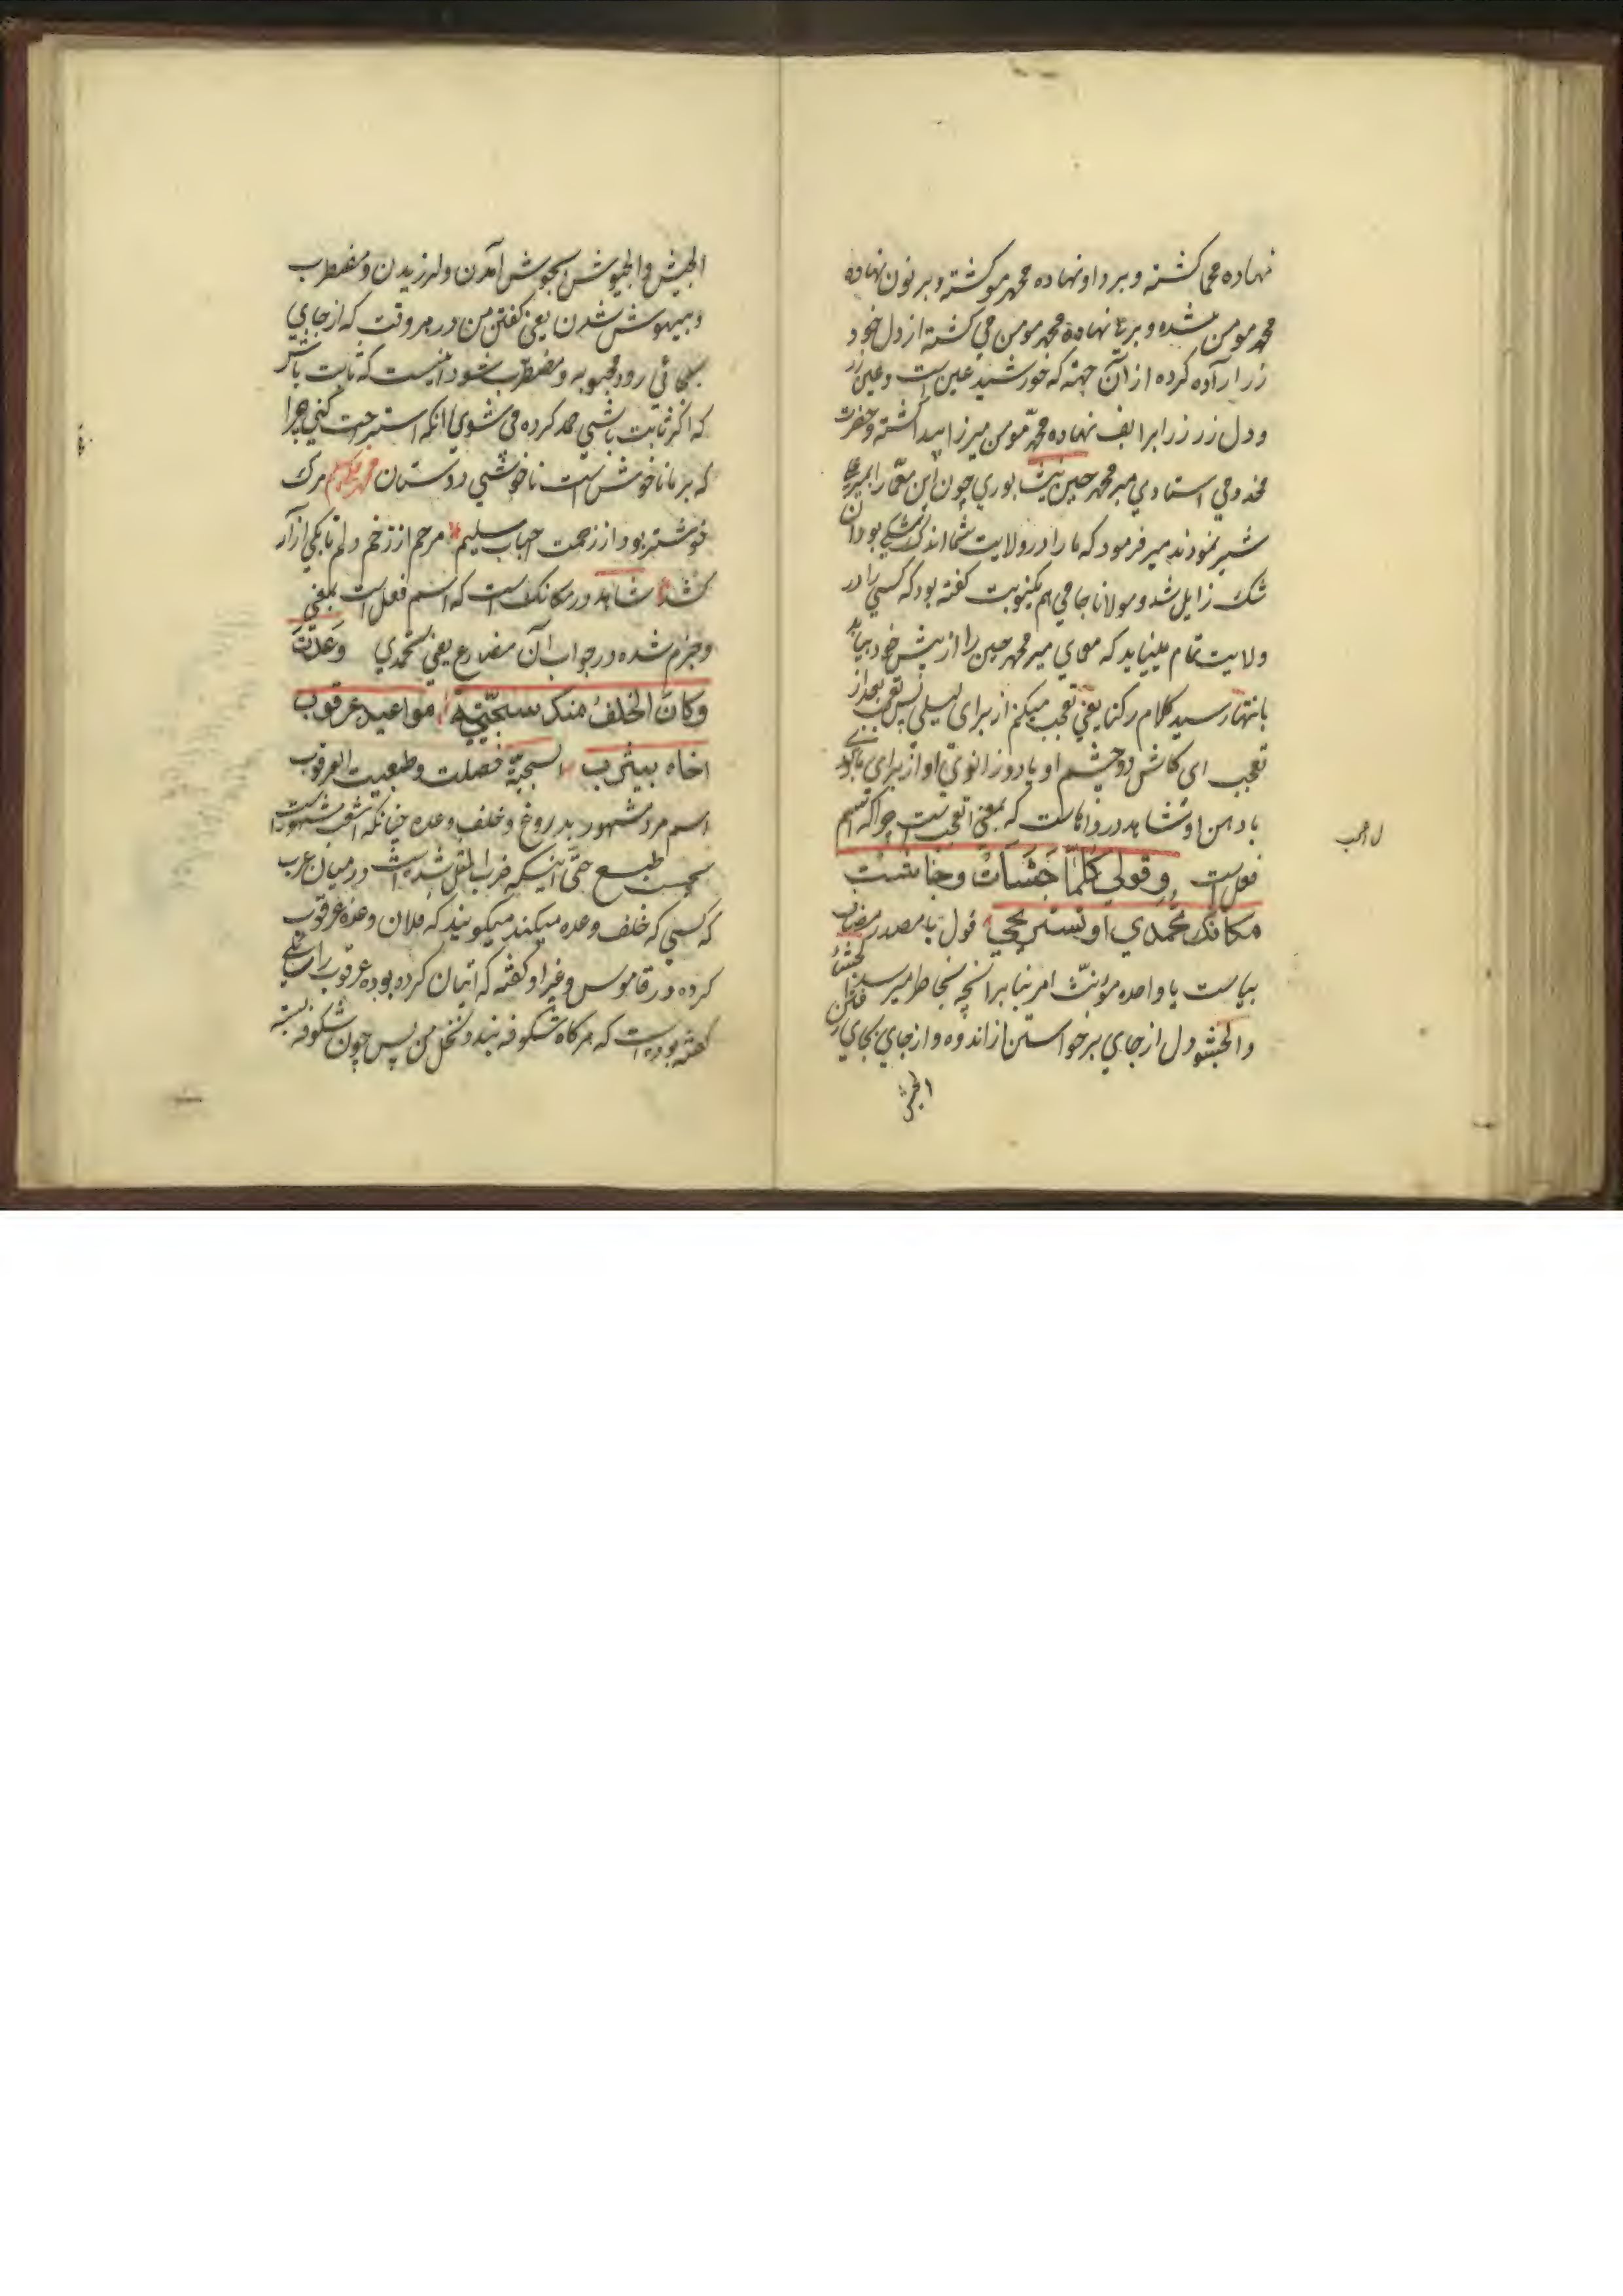 نهاده محمی کشته و بر واو نهاده محمد مو کشته و بر نون نهاده
محمد مومن شده و بر یا نهاده محمد مومن می کشته از دل خود
زر اراده کرده از آن جهته که خورشید عین است و عین زر
و دل زر زر را بر الف نهاده محمد مومن میرزا پیدا کشته و حضرت
مخدومی استادی میر محمد حسین نیشابوری چون این معما را بمیر علی
شیر نمودند میر فرمود که ما را در ولایت شما اندک شکی بود آن
شک زایل شد و مولانا جامی هم یکنوبت کفته بود که کسی را در
ولایت تمام میباید که معمای میر محمد حسین را از پیش خود بیابد
بانتها رسید کلام رکنا یعنی تعجب میکنم از برای لیلی پس تعجب بعد از
تعجب ای کاش دو چشم او یا دو زانوی او از برای ما بودی
با دهن او شاهد در واها است که بمعنی اتعجب است چرا که اسم
فعل است وقولي كلما جشأت وجاشت
مكانك تحمدي او تستريحي قول با مصدر مضاف
بیاست یا واحده مونث امر بنا بر آنچه بخاطر میرسد الجشأ
والجشو دل از جای برخواستن از اندوه و از جای بجای رفتن
الجیش
ل اعجب
الجیش والجیوش بجوش آمدن و لرزیدن و مضطرب
و بیهوش شدن یعنی کفتن من در هر وقت که از جای
بجائی رود محبوبه و مضطرب شود اینست که ثابت باش
که اکر ثابت باشی حمد کرده می شوی یا آنکه استراحت کنی چرا
که بر ما ناخوش است ناخوشی دوستان مرک
خوشتر بود از زحمت احباب سلیم مرحم از زخم دلم تا یکی آزار
کشد شاهد در مکانک است که اسم فعل است بمعنی
و جزم شده در جواب آن مضارع یعنی تحمدی وعدت
وكان الخلف منك سجيّة مواعيد عرقوب
اخاه بيثرب السجیة خصلت و طبعیت العرقوب
اسم مرد مشهور بدروغ و خلف وعده چنانکه اشعب مشهور است
بحسب طبع حتی اینکه ضرب المثل شده است در میان عرب
که کسی که خلف وعده میکند میکویند که فلان وعده عرقوب
کرده در قاموس و غیر او کفته که اتیان کرده بوده عرقوب را سائلی
کفته بوده است که هر کاه شکوفه بندد نخل من پس چون شکوفه بسته